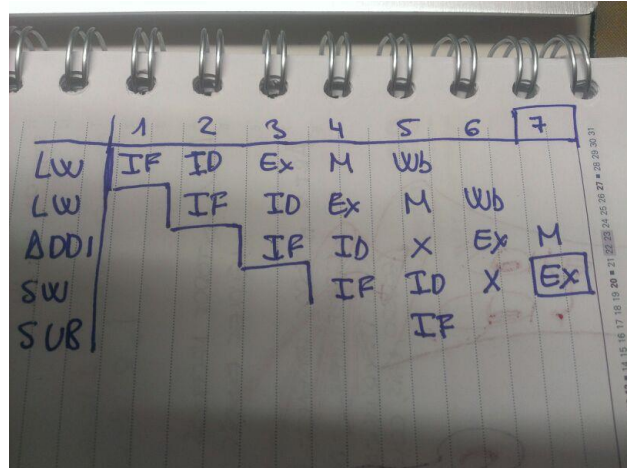 1 2 3 4 5 6 7
LW IF ID Ex M Wb
LW IF ID Ex M Wb
ADDI IF ID X Ex M
SW IF ID X Ex
SUB IF
14 15 16 17 18 19 20 21 22 23 24 25 26 27 28 29 30 31